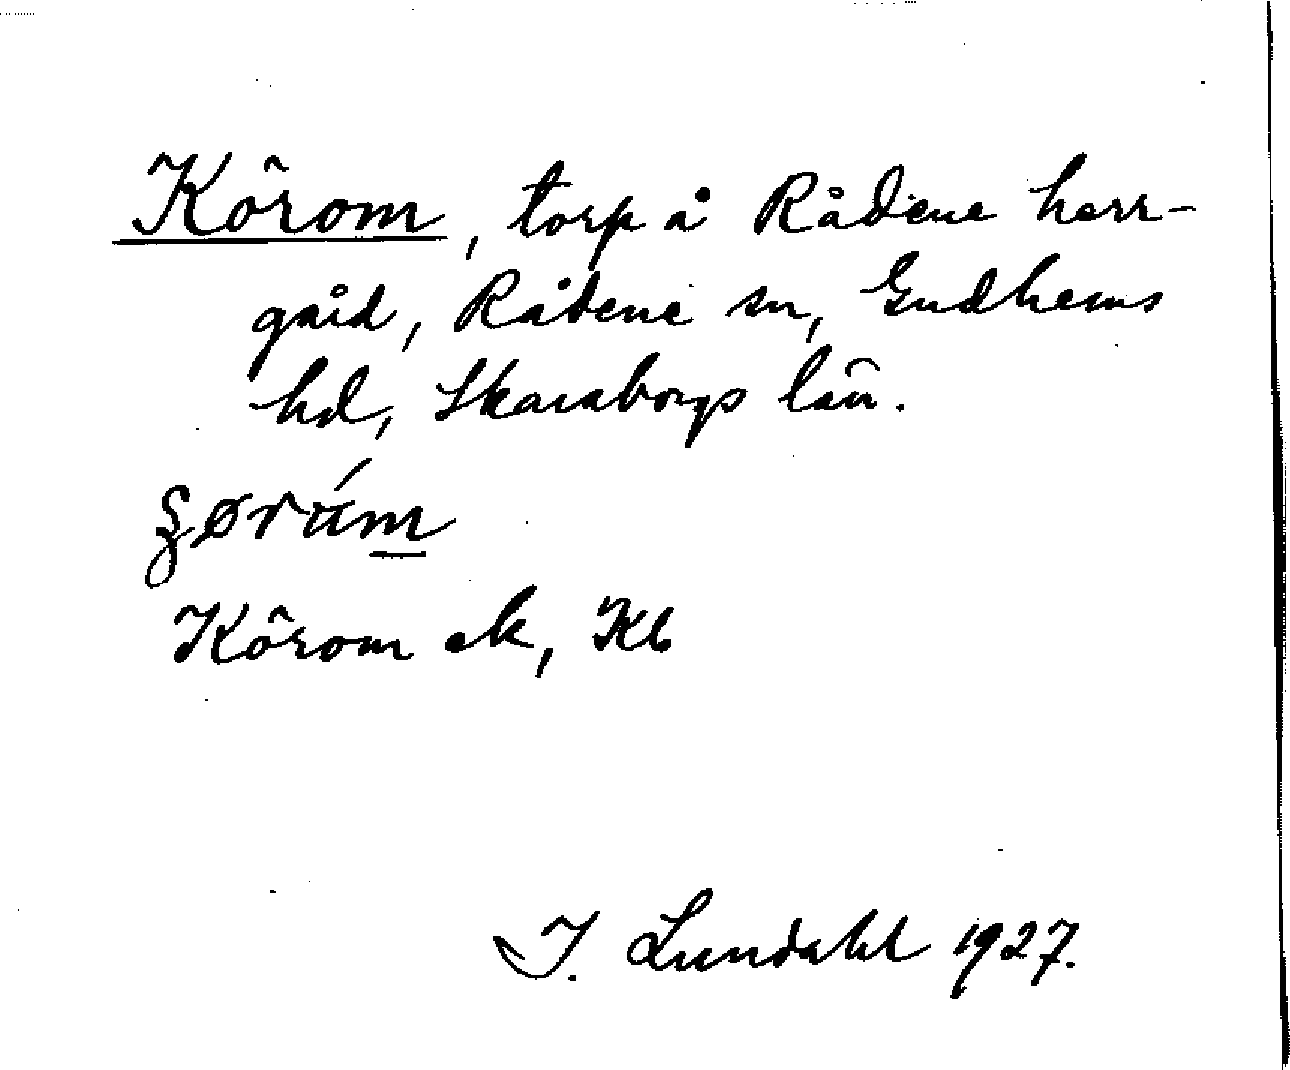 Körom, torp å Rådene herr-
gård, Rådene sn, Gudhems
hd, Skaraborgs län.
Körom ek, Kb
I. Lundahl 1927.